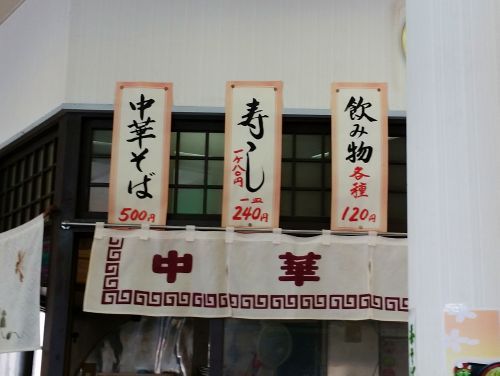 中華そば
500円
寿し
一ケ80円
一皿
240円
飲み物
各種
120円
中華